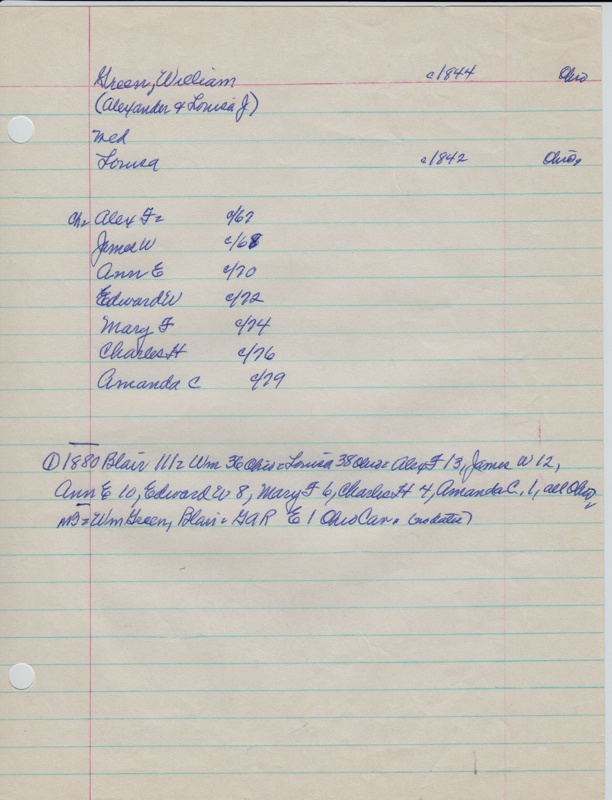 Green, William c1844 Ohio
(Alexander & Louisa J)
med
Louisa c1842 Ohio,
Ch= Alex F= c/67
James W c/68
Ann E c/70
Edward W c/72
Mary F c/74
Charles H c/76
Amanda C c/79
① 1880 Blair 111= Wm 36 Ohio= Louisa 38 Ohio= Alex F 13, James W 12,
Ann E 10, Edward W 8, Mary F 6, Charles H 4, Amanda C, 1, all Ohio,
= Wm Green, Blair= GAR E 1 Ohio Cav. (no date)